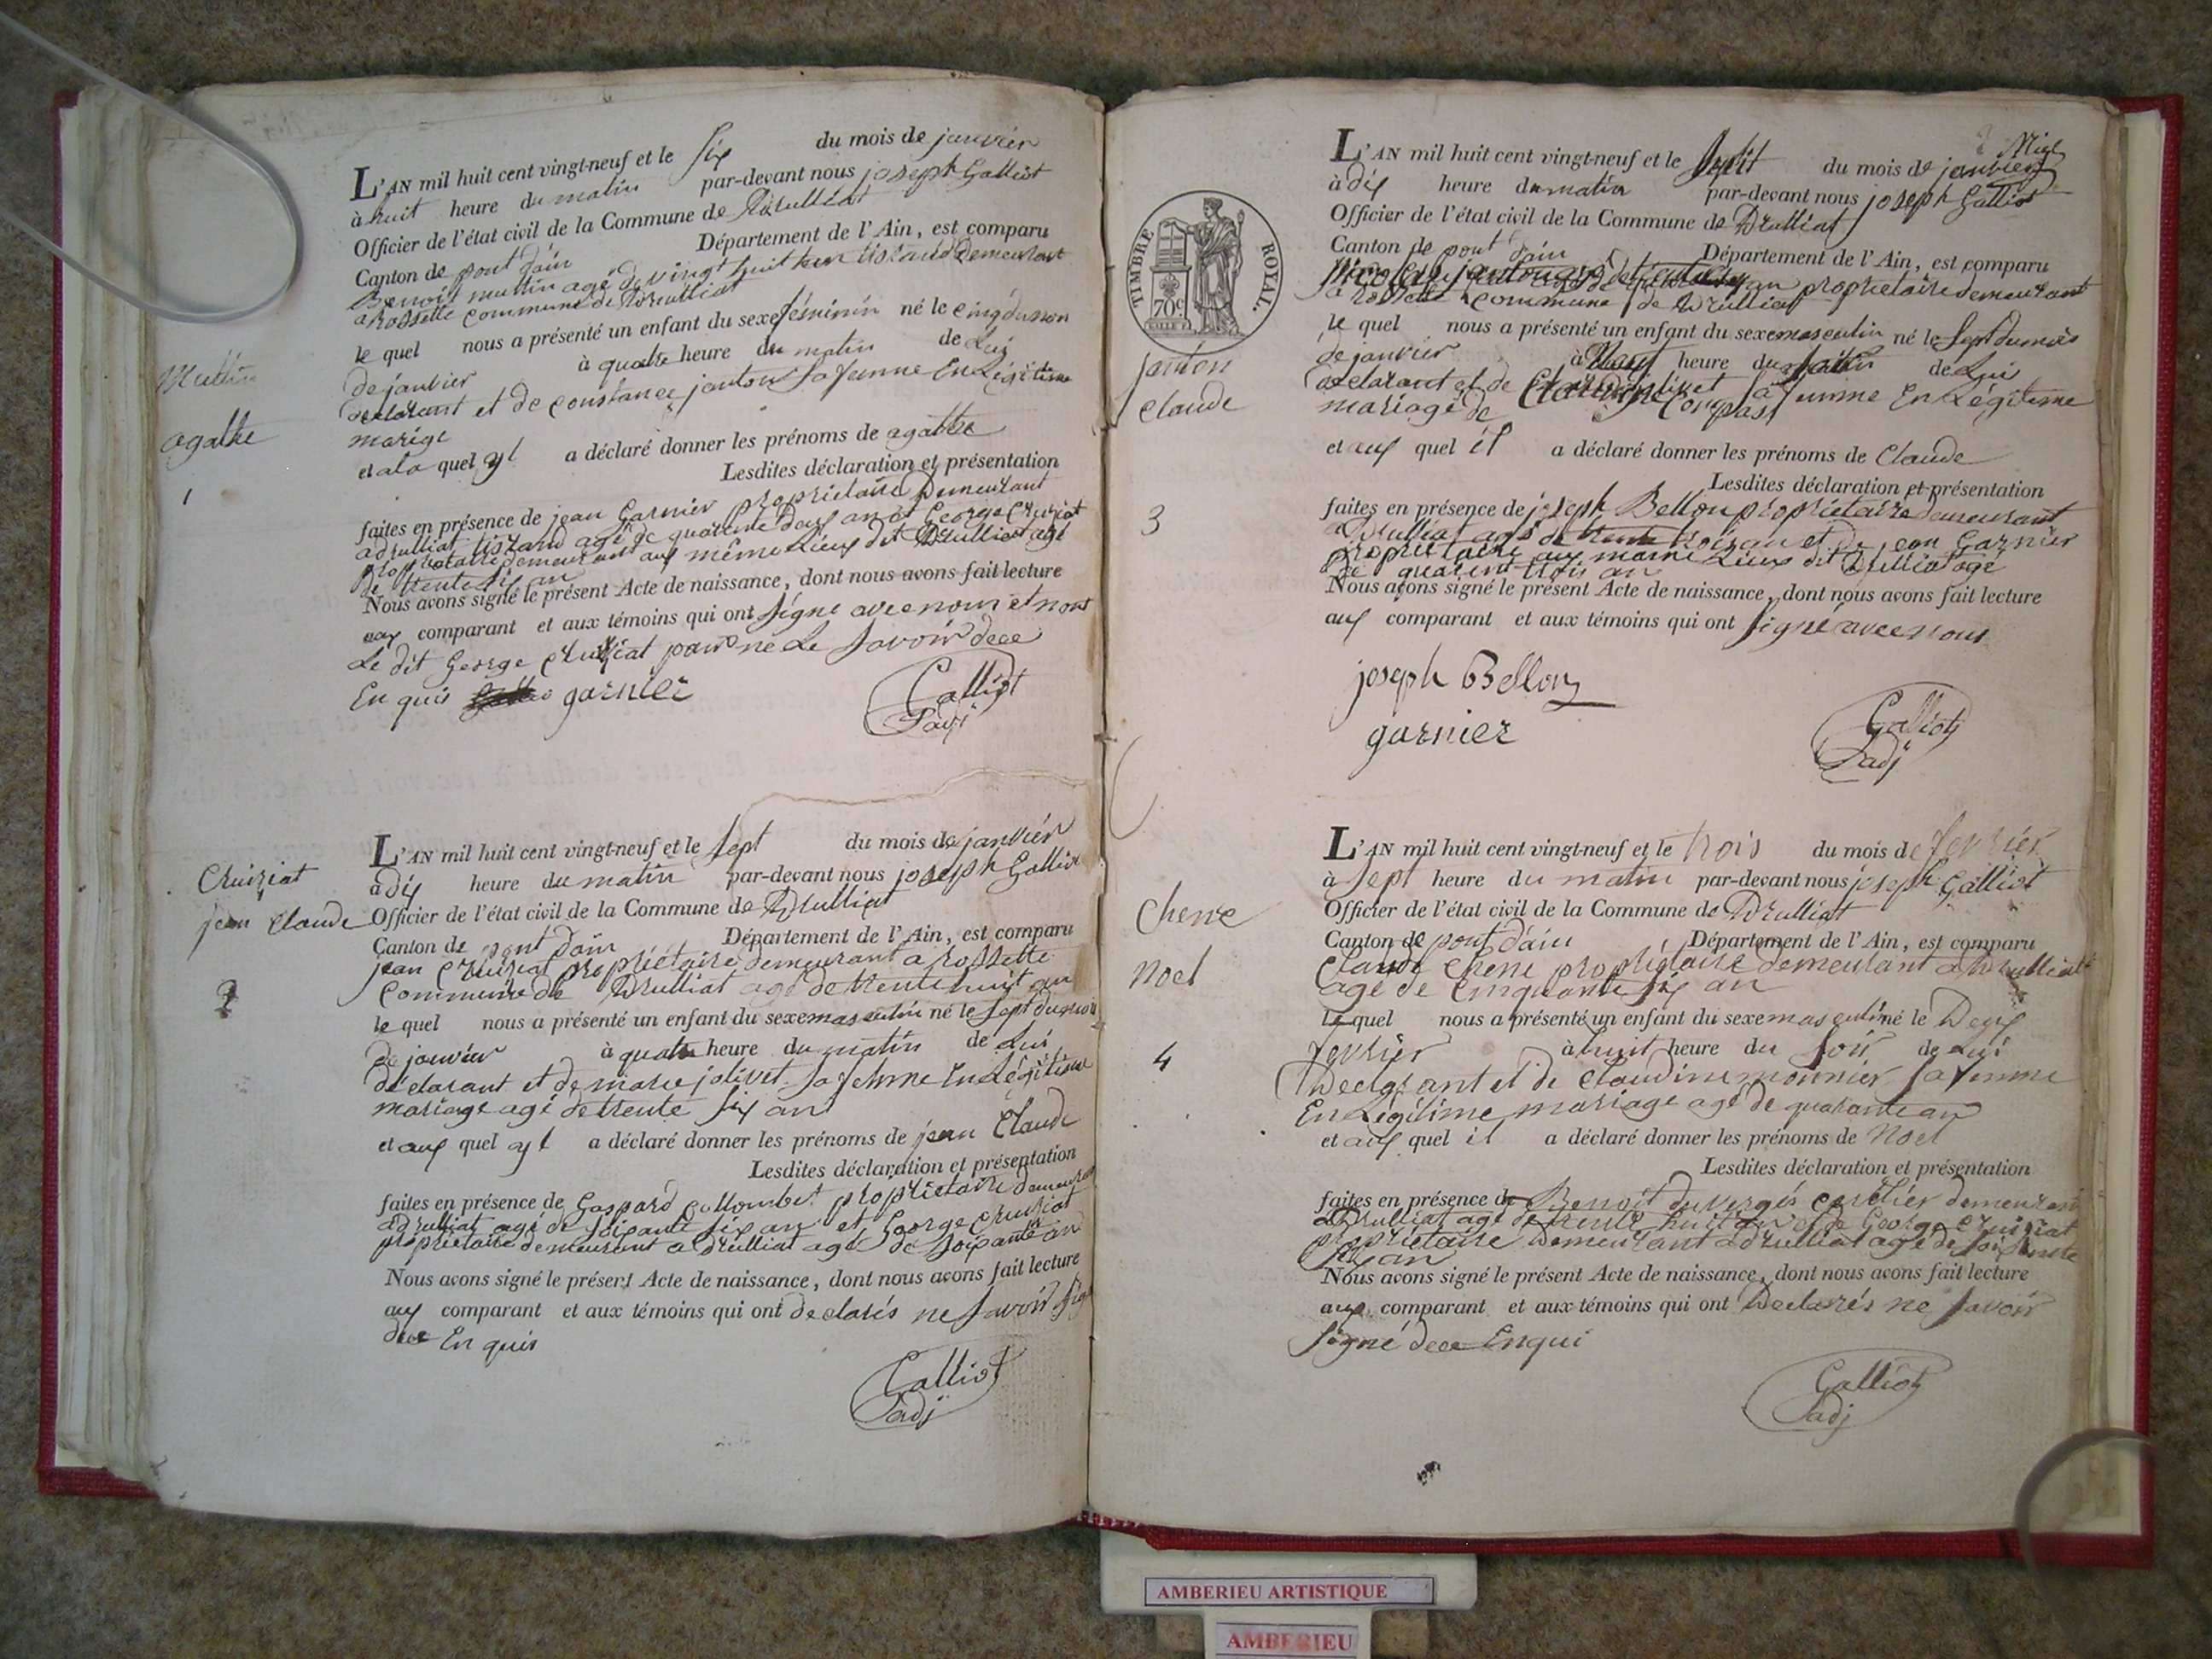 L'AN mil huit cent vingt-neuf et le six du mois de janvier
à huit heure du matin par-devant nous joseph Galliot
Officier de l'état civil de la Commune de Drulliat
Canton de pont dain Département de l'Ain, est comparu
Benoit muttin agé de vingt huit an tisrand Demeurant
a rossette commune de Drulliat
le quel nous a présenté un enfant du sexe féminin né le cinq du mon
de janvier à quatre heure du matin de Lui
declarant et de constance janton sa femme En Légitime
mariége
et ala quel yl a déclaré donner les prénoms de agathe
Lesdites déclaration et présentation
faites en présence de jean Garnier propriétaire Demeurant
a drulliat tisrand agé de quarente deux an et George Cruiziat
propriétaire demeurant aux même Lieux dit Drulliat agé
de trente six an
Nous avons signé le présent Acte de naissance, dont nous avons fait lecture
aux comparant et aux témoins qui ont signé avec nous et non
Le dit George Cruiziat pour ne Le savoir dece
En quis garnier
Galliot
adj
Muttin
agathe
1
L'AN mil huit cent vingt-neuf et le sept du mois de janviér
à dix heure du matin par-devant nous joseph Galliot
Officier de l'état civil de la Commune de Drulliat
Canton de pont dain Département de l'Ain, est comparu
jean Cruiziat propriétaire demeurant a rossette
Commune de Drulliat agé de trente huit an
le quel nous a présenté un enfant du sexe masculin né le sept du mois
de janvier à quatre heure du matin de Lui
déclarant et de marie jolivet sa femme En Légitime
mariage agé de trente six an
et aux quel yl a déclaré donner les prénoms de jean Claude
Lesdites déclaration et présentation
faites en présence de Gaspard Collombet propriétaire demeurant
a drulliat agé de soixante six an et George Cruiziat
propriétaire demeurant a drulliat agé de soixante an
Nous avons signé le présent Acte de naissance, dont nous avons fait lecture
aux comparant et aux témoins qui ont declarés ne savoir sign
dece En quis
Galliot
adj
Cruiziat
jean Claude
2
L'AN mil huit cent vingt-neuf et le huit du mois de janvier
à dix heure du matin par-devant nous joseph Galliot
Officier de l'état civil de la Commune de Drulliat
Canton de pont dain Département de l'Ain, est comparu
janton agé de an propriétaire demeurant
a rossette commune de Drulliat
le quel nous a présenté un enfant du sexe masculin né le sept du mois
de janvier à heure du de Lui
declarant et de sa femme En Légitime
mariage de
et aux quel il a déclaré donner les prénoms de Claude
Lesdites déclaration et présentation
faites en présence de joseph Bellon propriétaire demeurant
a Drulliat agé de trente trois an et de jean Garnier
propriétaire aux même Lieux dit Drulliat agé
de quarent trois an
Nous avons signé le présent Acte de naissance, dont nous avons fait lecture
aux comparant et aux témoins qui ont signé avec nous
joseph Bellon
garnier
Galliot
adj
TIMBRE ROYAL.
70c
janton
Claude
3
L'AN mil huit cent vingt-neuf et le trois du mois de fevriér
à sept heure du matin par-devant nous joseph Galliot
Officier de l'état civil de la Commune de Drulliat
Canton de pont d'ain Département de l'Ain, est comparu
Claude Chene propriétaire demeurant a Drulliat
agé de cinquante six an
le quel nous a présenté un enfant du sexe masculin né le Deux
fevriér à huit heure du soir de Lui
Declarant et de Claudine monnier sa femme
En Légitime mariage agé de quarante an
et aux quel il a déclaré donner les prénoms de Noel
Lesdites déclaration et présentation
faites en présence de Benoit duvergis demeurant
a Drulliat agé de trente huit an et de George Cruiziat
propriétaire Demeurant a drulliat agé de soixante
six an
Nous avons signé le présent Acte de naissance, dont nous avons fait lecture
aux comparant et aux témoins qui ont Declarés ne savoir
signé dece Enqui
Galliot
adj
Chene
Noel
4
AMBERIEU ARTISTIQUE
AMBERIEU